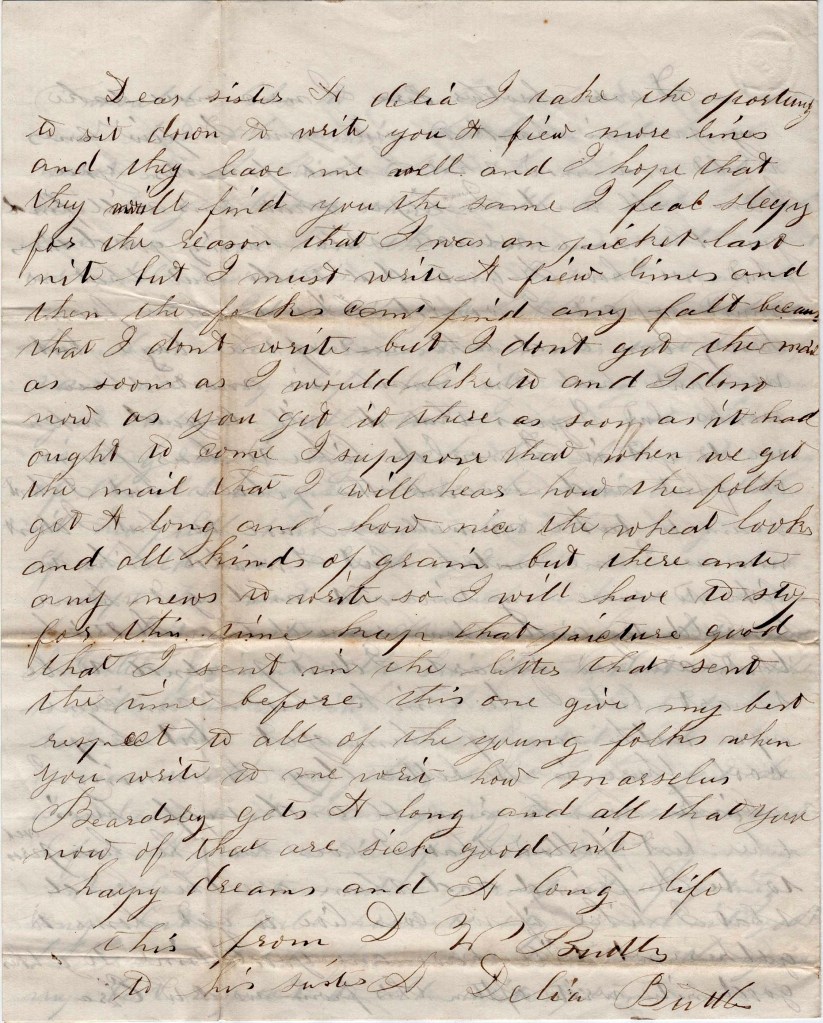 Dear sister A delia I take the oportuny
to sit down to write you A fiew more lines
and they leave me well and I hope that
they will find you the same I feal sleepy
for the reason that I was on picket last
nite but I must write A fiew lines and
then the folks can find any falt becaus
that I dont write but I dont get the mail
as soon as I would like to and I dont
now as you get it there as soon as it had
ought to come I suppose that when we get
the mail that I will hear how the folks
get A long and how nice the wheat looks
and all kinds of grain but there ante
any news to write so I will have to stop
for this time keep that picture good
that I sent in the letter that sent
the time before this one give my best
respect to all of the young folks when
you write to me writ how marselus
Beardsley gets A long and all that you
now of that are sick good nite
happy dreams and A long life
this from D W Buttls
to his sister A Delia Buttls